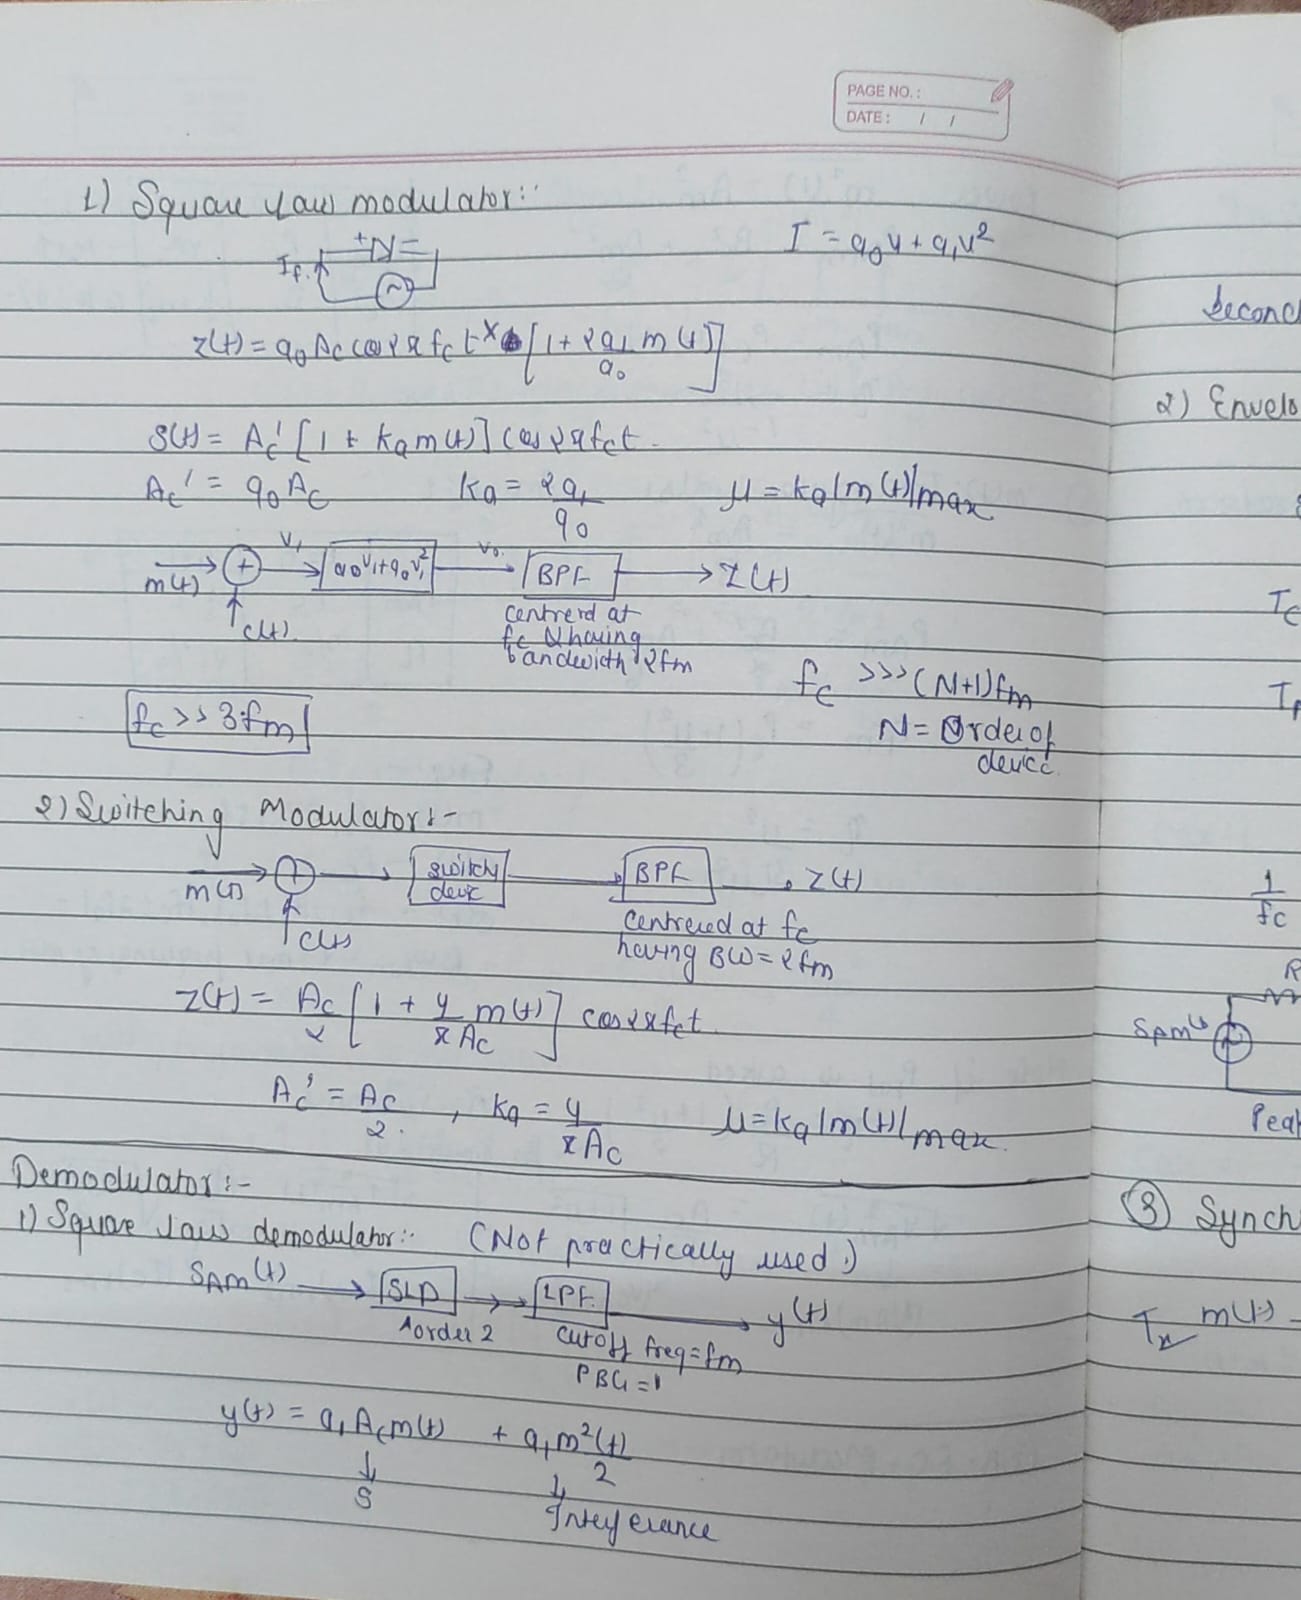 PAGE NO. :
DATE : / /
1) Square law modulator:-
I = a0v + a1v²
If.
z(t) = a0 Ac cos 2π fc t × [1 + 2a1/a0 m(t)]
S(t) = Ac' [1 + ka m(t)] cos 2πfct.
Ac' = a0 Ac ka = 2a1/a0 μ = ka|m(t)|max
m(t) + V1 a0v1+a0v1² Vo. BPF Z(t)
c(t).
centrerd at
fc & having
bandwidth 2fm
fc >>> (N+1)fm
N = Order of
device.
fc >> 3fm
2) Switching Modulator:-
m(t) + switch BPF z(t)
c(t)
devic
Centrered at fc
having BW = 2fm
z(t) = Ac/2 [1 + 4/πAc m(t)] cos 2πfct.
Ac' = Ac/2. , ka = 4/πAc μ = ka|m(t)|max.
Demodulator:-
1) Square law demodulator:- (Not practically used.)
SAM(t) SLD LPF. y(t)
order 2
Cutoff freq = fm
PBG = 1
y(t) = a1 Ac m(t) + a1m²(t)/2
S
Interferance
Second
2) Envelo
1/fc
R
SAM
Peak
③ Synch
Tx m(t)